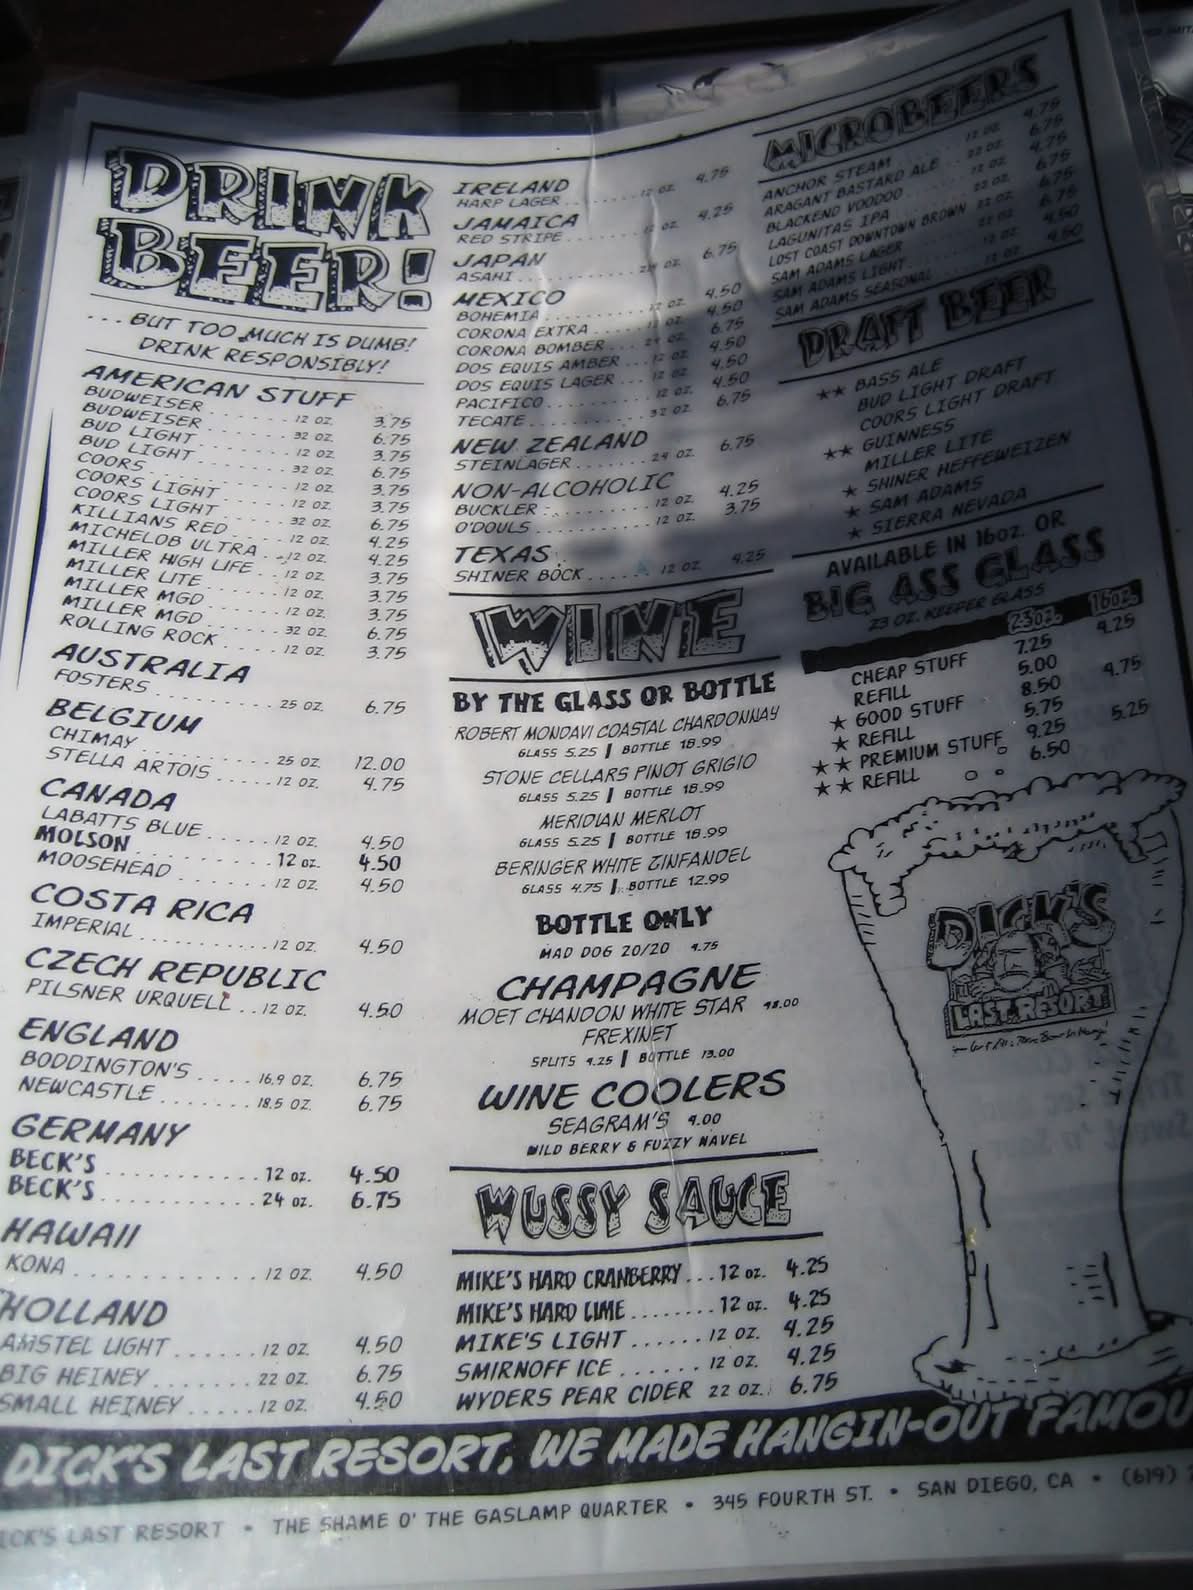 DRINK
BEER!
... BUT TOO MUCH IS DUMB!
DRINK RESPONSIBLY!
AMERICAN STUFF
BUDWEISER ........ 12 OZ. 3.75
BUDWEISER ........ 32 OZ. 6.75
BUD LIGHT ........ 12 OZ. 3.75
BUD LIGHT ........ 32 OZ. 6.75
COORS ........ 12 OZ. 3.75
COORS LIGHT ........ 12 OZ. 3.75
COORS LIGHT ........ 32 OZ. 6.75
KILLIANS RED ........ 12 OZ. 4.25
MICHELOB ULTRA ..12 OZ. 4.25
MILLER HIGH LIFE ..12 OZ. 3.75
MILLER LITE ........ 12 OZ. 3.75
MILLER MGD ........ 12 OZ. 3.75
MILLER MGD ........ 32 OZ. 6.75
ROLLING ROCK ...... 12 OZ. 3.75
AUSTRALIA
FOSTERS ........ 25 OZ. 6.75
BELGIUM
CHIMAY ........ 25 OZ. 12.00
STELLA ARTOIS ...... 12 OZ. 4.75
CANADA
LABATTS BLUE ...... 12 OZ. 4.50
MOLSON ........ 12 OZ. 4.50
MOOSEHEAD ........ 12 OZ. 4.50
COSTA RICA
IMPERIAL ........ 12 OZ. 4.50
CZECH REPUBLIC
PILSNER URQUELL ..12 OZ. 4.50
ENGLAND
BODDINGTON'S .... 16.9 OZ. 6.75
NEWCASTLE ........ 18.5 OZ. 6.75
GERMANY
BECK'S ........ 12 OZ. 4.50
BECK'S ........ 24 OZ. 6.75
HAWAII
KONA ........ 12 OZ. 4.50
HOLLAND
AMSTEL LIGHT ...... 12 OZ. 4.50
BIG HEINEY ........ 22 OZ. 6.75
SMALL HEINEY ...... 12 OZ. 4.50
IRELAND
HARP LAGER ........ 12 OZ. 4.75
JAMAICA
RED STRIPE ........ 12 OZ. 4.25
JAPAN
ASAHI ........ OZ. 6.75
MEXICO
BOHEMIA ........ 12 OZ. 4.50
CORONA EXTRA ...... 12 OZ. 4.50
CORONA BOMBER ... 24 OZ. 6.75
DOS EQUIS AMBER ... 12 OZ. 4.50
DOS EQUIS LAGER ... 12 OZ. 4.50
PACIFICO ........ 12 OZ. 4.50
TECATE ........ 32 OZ. 6.75
NEW ZEALAND
STEINLAGER ........ 24 OZ. 6.75
NON-ALCOHOLIC
BUCKLER ........ 12 OZ. 4.25
O'DOULS ........ 12 OZ. 3.75
TEXAS
SHINER BOCK ...... 12 OZ. 4.25
WINE
BY THE GLASS OR BOTTLE
ROBERT MONDAVI COASTAL CHARDONNAY
GLASS 5.25 | BOTTLE 18.99
STONE CELLARS PINOT GRIGIO
GLASS 5.25 | BOTTLE 18.99
MERIDIAN MERLOT
GLASS 5.25 | BOTTLE 18.99
BERINGER WHITE ZINFANDEL
GLASS 4.75 | BOTTLE 12.99
BOTTLE ONLY
MAD DOG 20/20 4.75
CHAMPAGNE
MOET CHANDON WHITE STAR 48.00
FREXINET
SPLITS 4.25 | BOTTLE 13.00
WINE COOLERS
SEAGRAM'S 4.00
WILD BERRY & FUZZY NAVEL
WUSSY SAUCE
MIKE'S HARD CRANBERRY ...12 OZ. 4.25
MIKE'S HARD LIME ........12 OZ. 4.25
MIKE'S LIGHT ...... 12 OZ. 4.25
SMIRNOFF ICE ...... 12 OZ. 4.25
WYDERS PEAR CIDER 22 OZ. 6.75
MICROBEERS
ANCHOR STEAM 12 OZ. 4.75
ARAGANT BASTARD ALE 22 OZ. 6.75
BLACKEND VOODOO 12 OZ. 4.75
LAGUNITAS IPA 22 OZ. 6.75
LOST COAST DOWNTOWN BROWN 22 OZ. 6.75
SAM ADAMS LAGER
SAM ADAMS LIGHT 12 OZ. 4.50
SAM ADAMS SEASONAL 12 OZ. 4.50
DRAFT BEER
★★ BASS ALE
BUD LIGHT DRAFT
COORS LIGHT DRAFT
★★ GUINNESS
MILLER LITE
★ SHINER HEFFEWEIZEN
★ SAM ADAMS
★ SIERRA NEVADA
AVAILABLE IN 16oz. OR
BIG ASS GLASS
23 OZ. KEEPER GLASS
23oz. 16oz.
CHEAP STUFF 7.25 4.25
REFILL 5.00
★ GOOD STUFF 8.50 4.75
★ REFILL 5.75
★★ PREMIUM STUFF 9.25 5.25
★★ REFILL 6.50
DICK'S
LAST RESORT
DICK'S LAST RESORT, WE MADE HANGIN-OUT FAMOU
ICK'S LAST RESORT • THE SHAME O' THE GASLAMP QUARTER • 345 FOURTH ST. • SAN DIEGO, CA • (619)